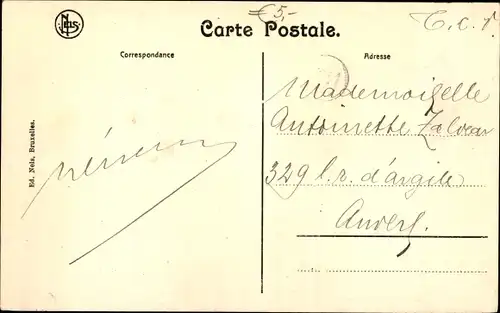 NELS
€5,-
T.C.V.
Carte Postale.
Correspondance
Adresse
Mademoiselle
Antoinette
329 l.r. d'argile
Anvers.
Ed. Nels, Bruxelles.